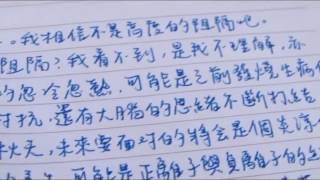 。我相信不是高度的阻隔吧。
阻隔?我看不到,是我不理解,亦
的忽冷忽熱,可能是之前發燒生病
對抗,還有大腦的思緒不斷打結
秋天,未來要面對的將會是個炎涼
可能是正離子與負離子的